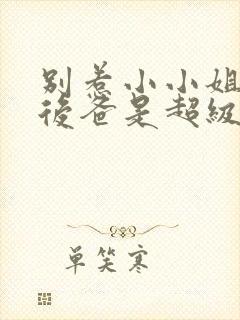 别惹小小姐
後爸是超級
单笑寒